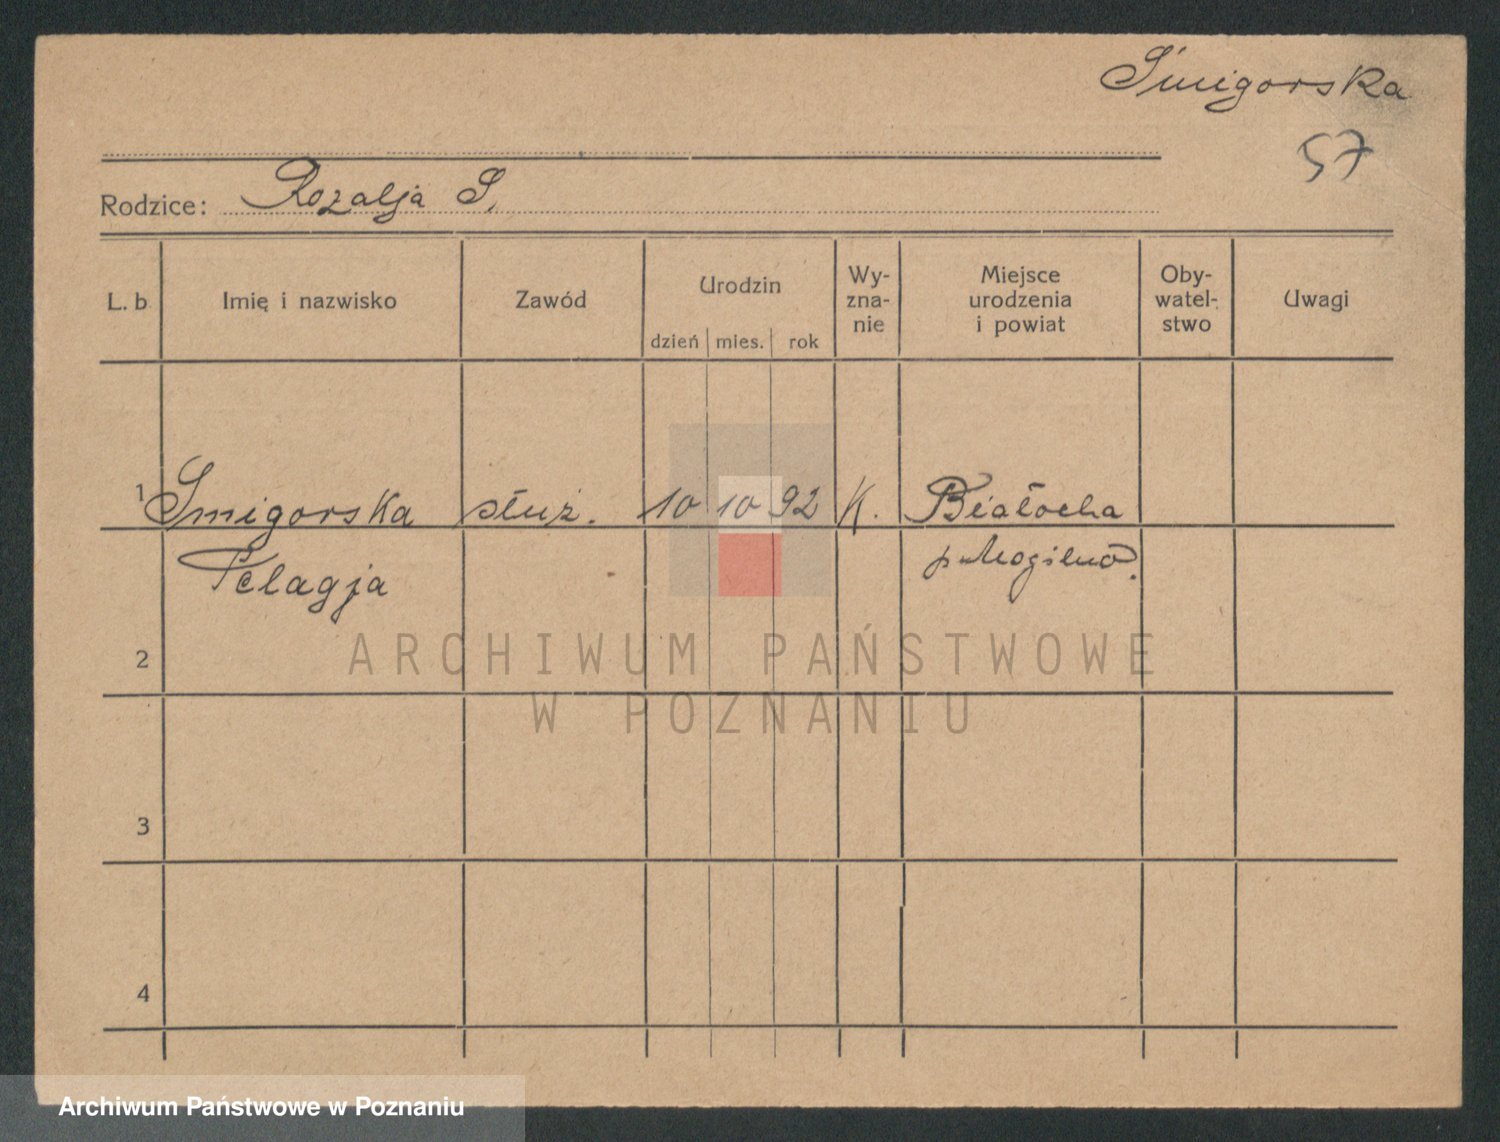 Śmigorska
57
Rodzice: Rozalja S.
L. b
Imię i nazwisko
Zawód
Urodzin
dzień
mies.
rok
Wy-
zna-
nie
Miejsce
urodzenia
i powiat
Oby-
watel-
stwo
Uwagi
1 Smigorska służ. 10 10 92 K. Białocha
Pelagja p. Mogilno.
2
3
4
ARCHIWUM PAŃSTWOWE
W POZNANIU
Archiwum Państwowe w Poznaniu